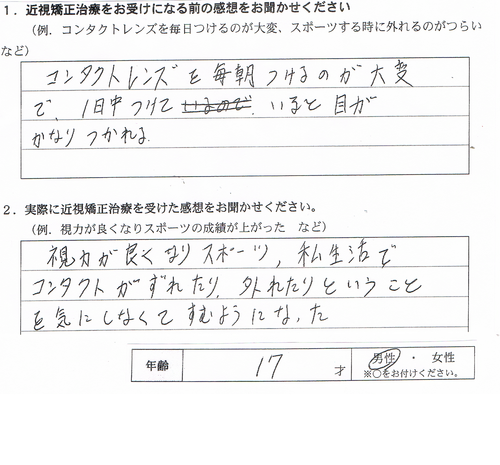 1．近視矯正治療をお受けになる前の感想をお聞かせください
（例．コンタクトレンズを毎日つけるのが大変、スポーツする時に外れるのがつらい
など）
コンタクトレンズを毎朝つけるのが大変
で、1日中つけて いるので いると目が
かなりつかれる.
2．実際に近視矯正治療を受けた感想をお聞かせください。
（例．視力が良くなりスポーツの成績が上がった　など）
視力が良くなりスポーツ、私生活で
コンタクトがずれたり、外れたりということ
を気にしなくてすむようになった
年齢 17 才 男性 ・ 女性
※○をお付けください。